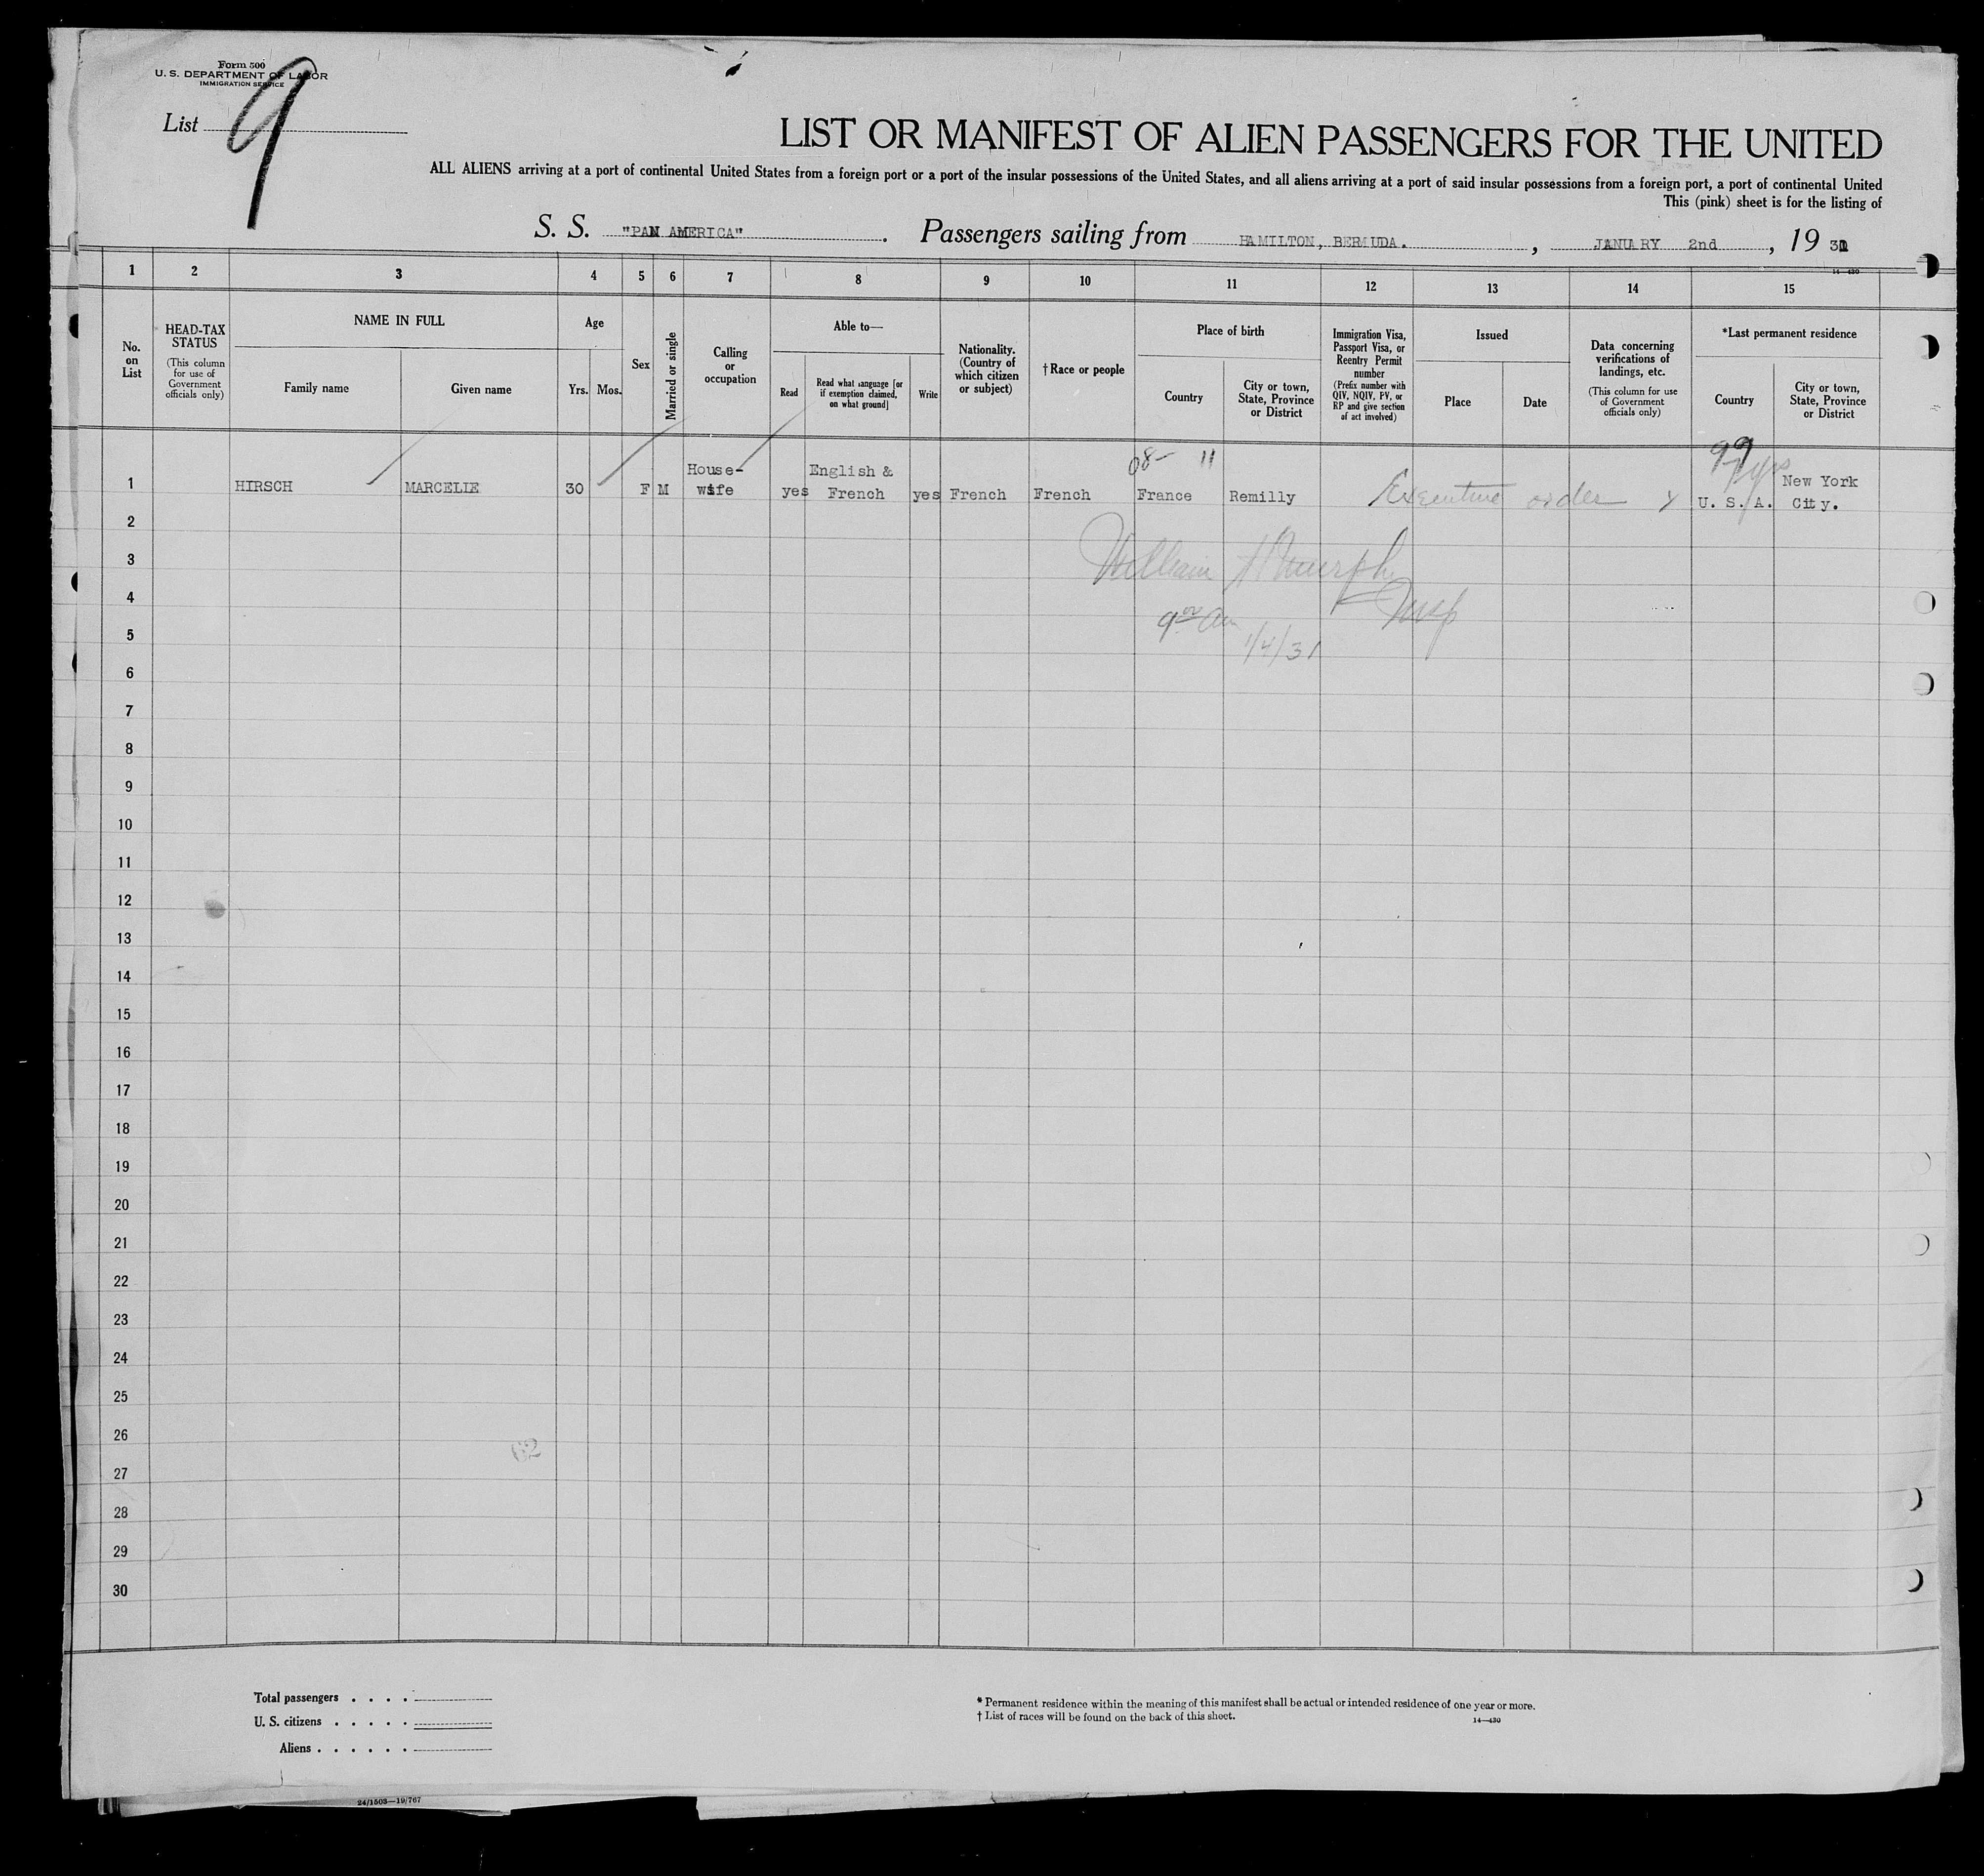 Form 500
U. S. DEPARTMENT OF LABOR
IMMIGRATION SERVICE
List 9
LIST OR MANIFEST OF ALIEN PASSENGERS FOR THE UNITED
ALL ALIENS arriving at a port of continental United States from a foreign port or a port of the insular possessions of the United States, and all aliens arriving at a port of said insular possessions from a foreign port, a port of continental United
This (pink) sheet is for the listing of
S. S. "PAN AMERICA". Passengers sailing from HAMILTON, BERMUDA. , JANUARY 2nd , 19 31
14—430
1 2 3 4 5 6 7 8 9 10 11 12 13 14 15
No. on List
HEAD-TAX STATUS
(This column for use of Government officials only)
NAME IN FULL
Family name
Given name
Age
Yrs. Mos.
Sex
Married or single
Calling or occupation
Able to—
Read
Read what language [or if exemption claimed, on what ground]
Write
Nationality. (Country of which citizen or subject)
†Race or people
Place of birth
Country
City or town, State, Province or District
Immigration Visa, Passport Visa, or Reentry Permit number
(Prefix number with QIV, NQIV, PV, or RP and give section of act involved)
Issued
Place
Date
Data concerning verifications of landings, etc.
(This column for use of Government officials only)
*Last permanent residence
Country
City or town, State, Province or District
08- 11 99
1 HIRSCH MARCELIE 30 F M House-wife yes English & French yes French French France Remilly Executive order U. S. A. New York City.
William H Murphy
Insp
9 00 am
1/4/31
2
3
4
5
6
7
8
9
10
11
12
13
14
15
16
17
18
19
20
21
22
23
24
25
26
27
28
29
30
62
Total passengers . . . .
U. S. citizens . . . . .
Aliens . . . . . .
* Permanent residence within the meaning of this manifest shall be actual or intended residence of one year or more.
† List of races will be found on the back of this sheet.
14—430
24/1503—19/767